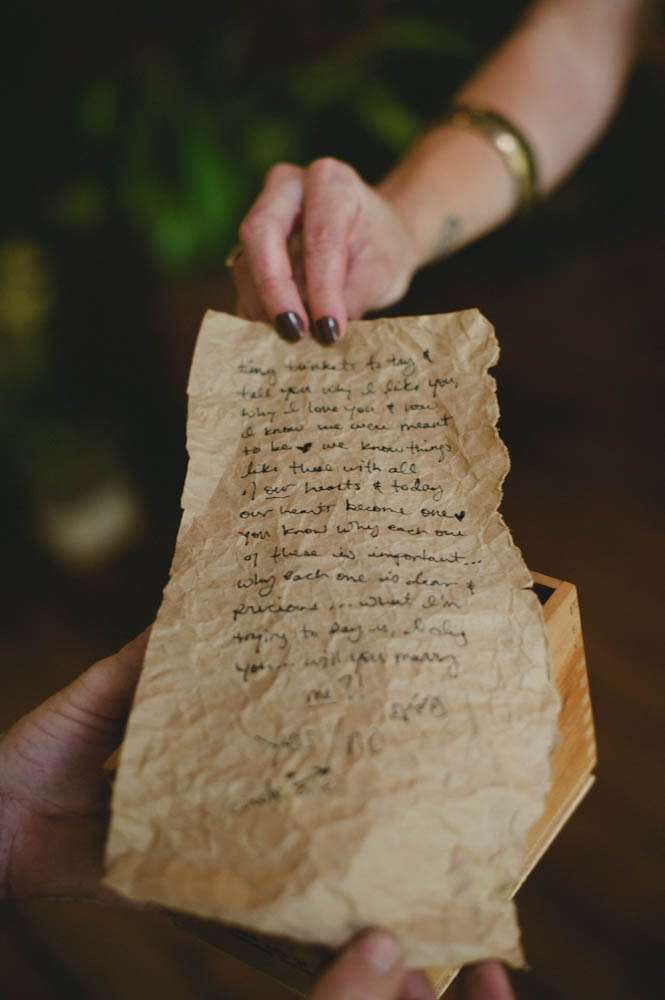 tiny trinkets to try &
tell you why I like you,
why I love you & how
I know we were meant
to be ♥ we know things
like these with all
of our hearts & today
our hearts become one ♥
you know why each one
of these is important...
why each one is dear &
precious... what I'm
trying to say is, I
you... will you marry
me?!